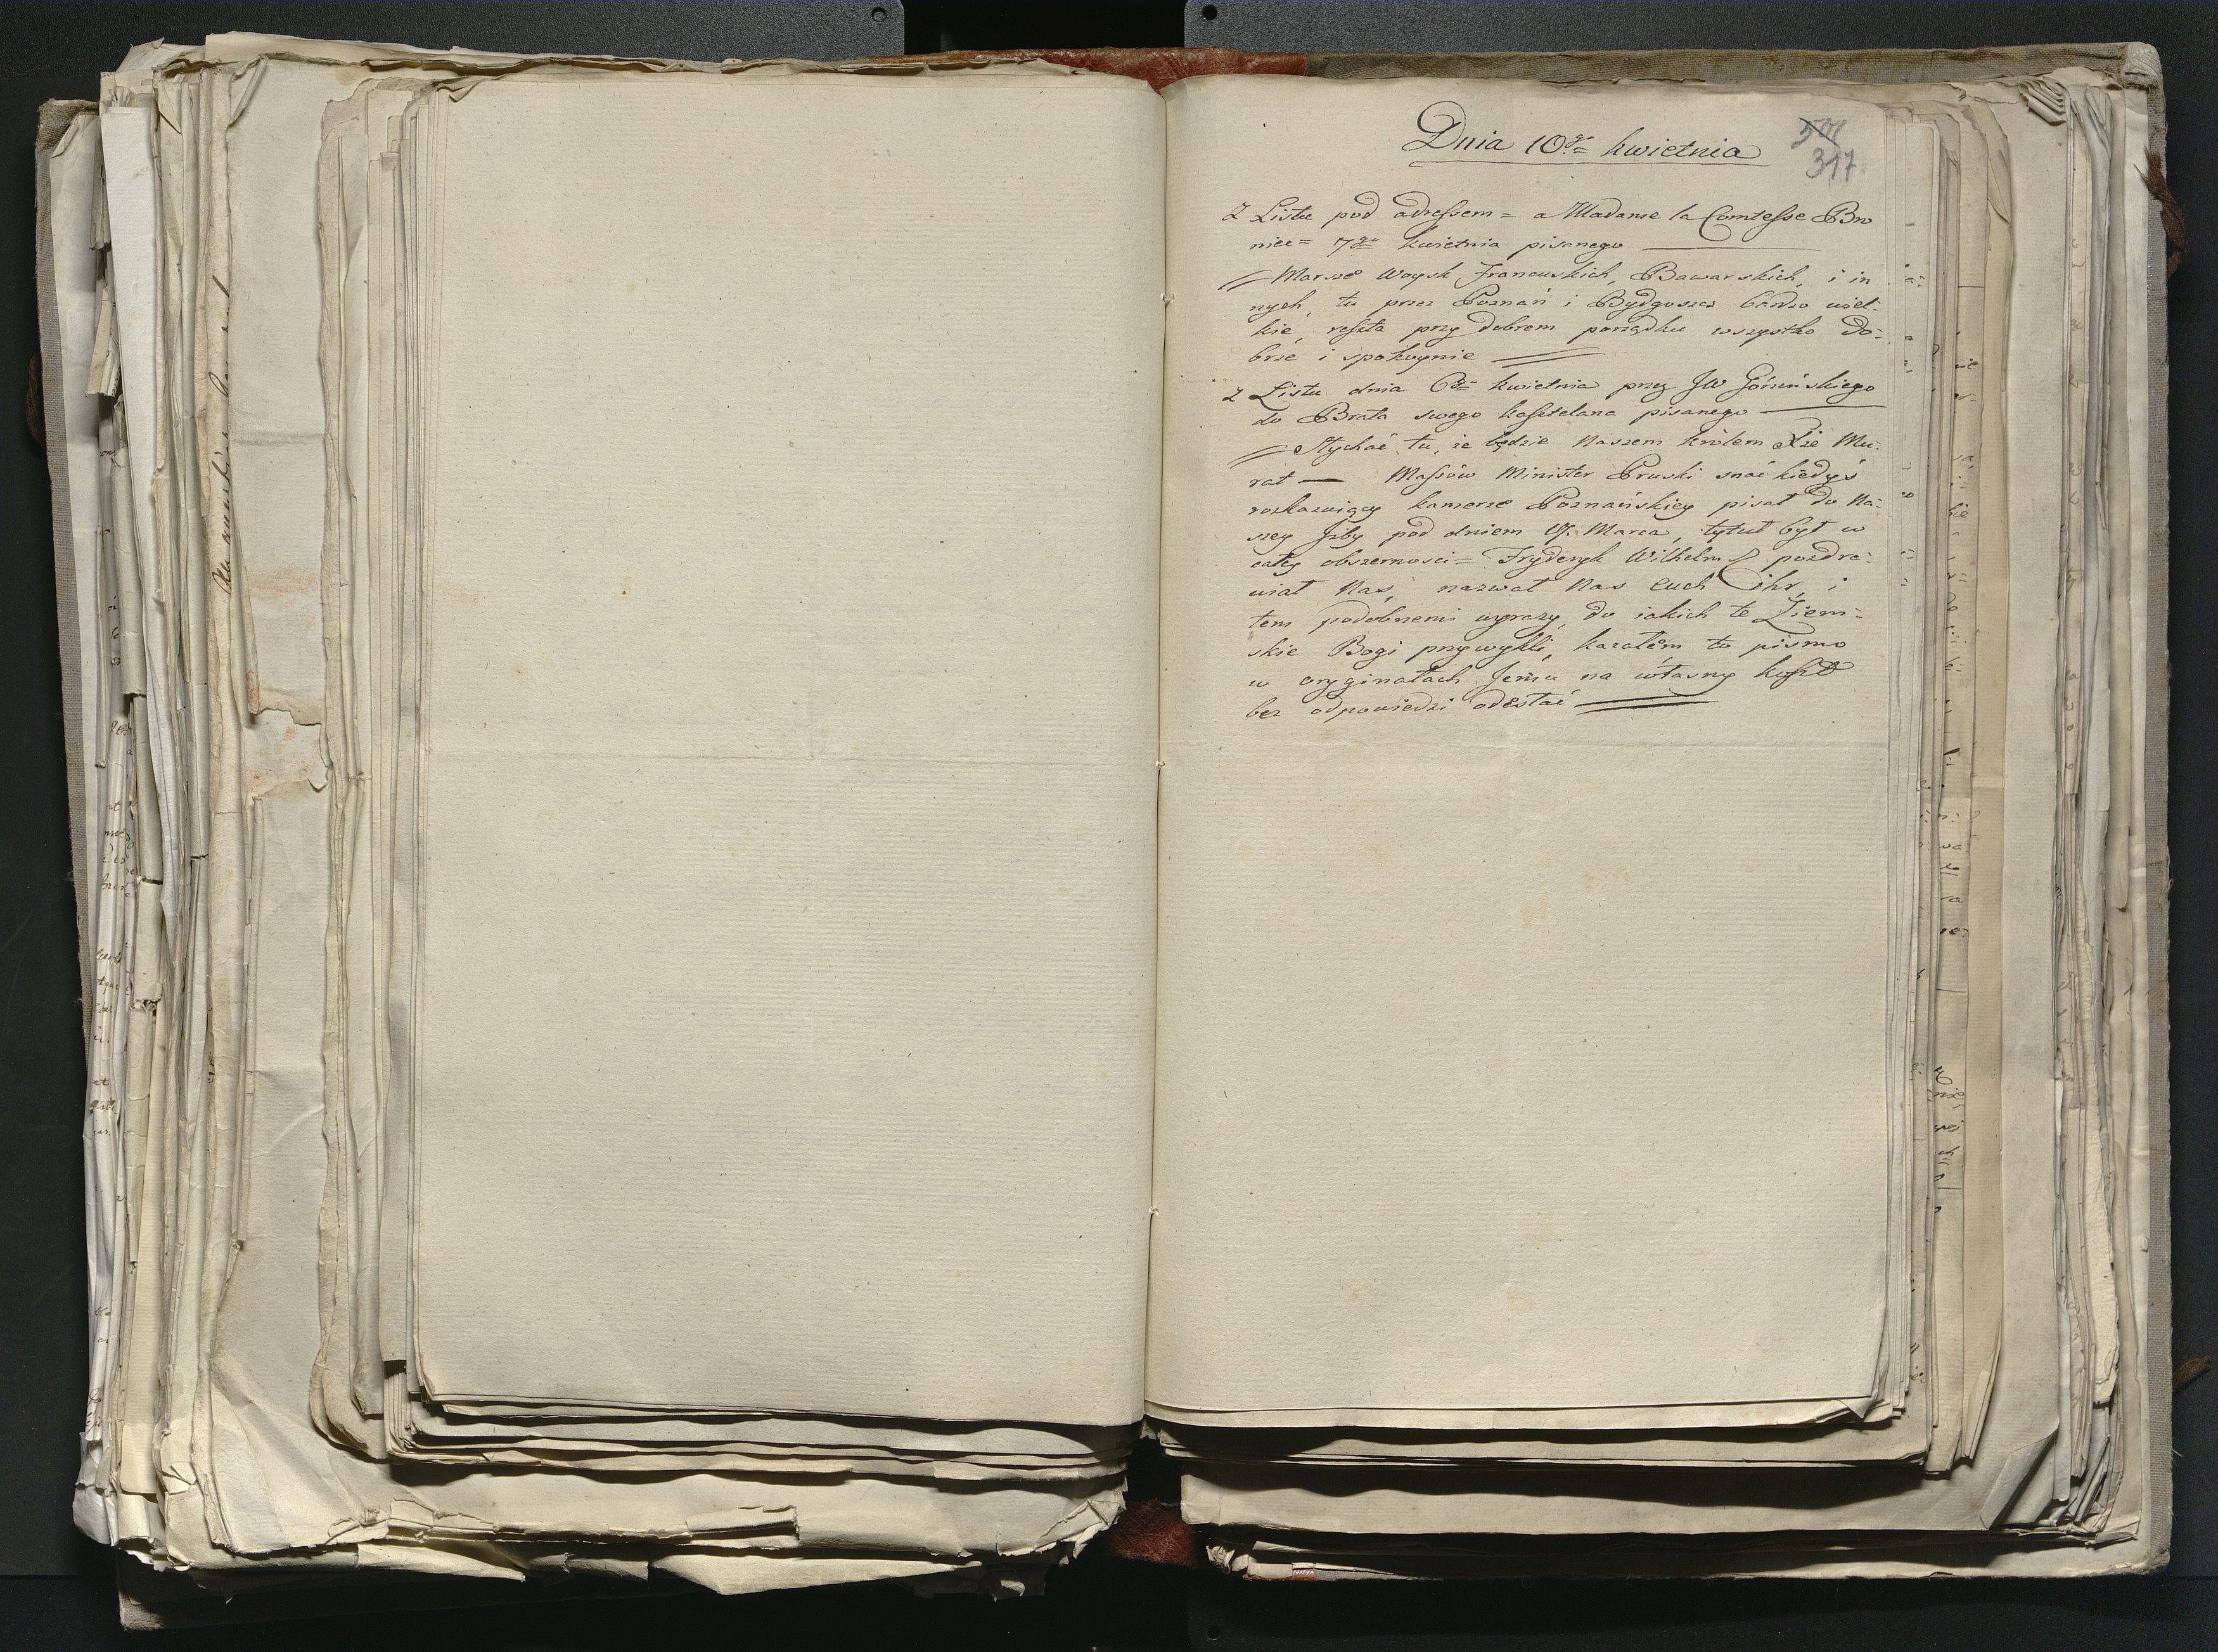 Dnia 10go kwietnia
317
Z Listu pod adressem = a Madame la Comtesse Bro
nice = 7go kwietnia pisanego
Marsze Woysk Francuskich, Bawarskich, i in
nych, tu przez Poznań i Bydgoszcz bardzo wiel:
kie, reszta przy dobrem porządku wszystko do:
brze i spokoynie
Z Listu dnia 6go kwietnia przez JW
do Brata swego kasztelana pisanego
Słychać tu, że będzie Naszem królem Xże Mu:
rat — Massów Minister Pruski snać kiedyś
rozkazuiący kamerze Poznańskiey pisał do Na:
szey Jzby pod dniem Marca, tytuł był w
całey obszerności = Fryderyk Wilhelm pozdra:
wiał Nas, nazwał Nas Euch ihr, i
tem podobnemi wyrazy, do iakich te Ziem:
skie Bogi przywykli, kazałem to pismo
w oryginałach Jemu na własny koszt
bez odpowiedzi odesłać